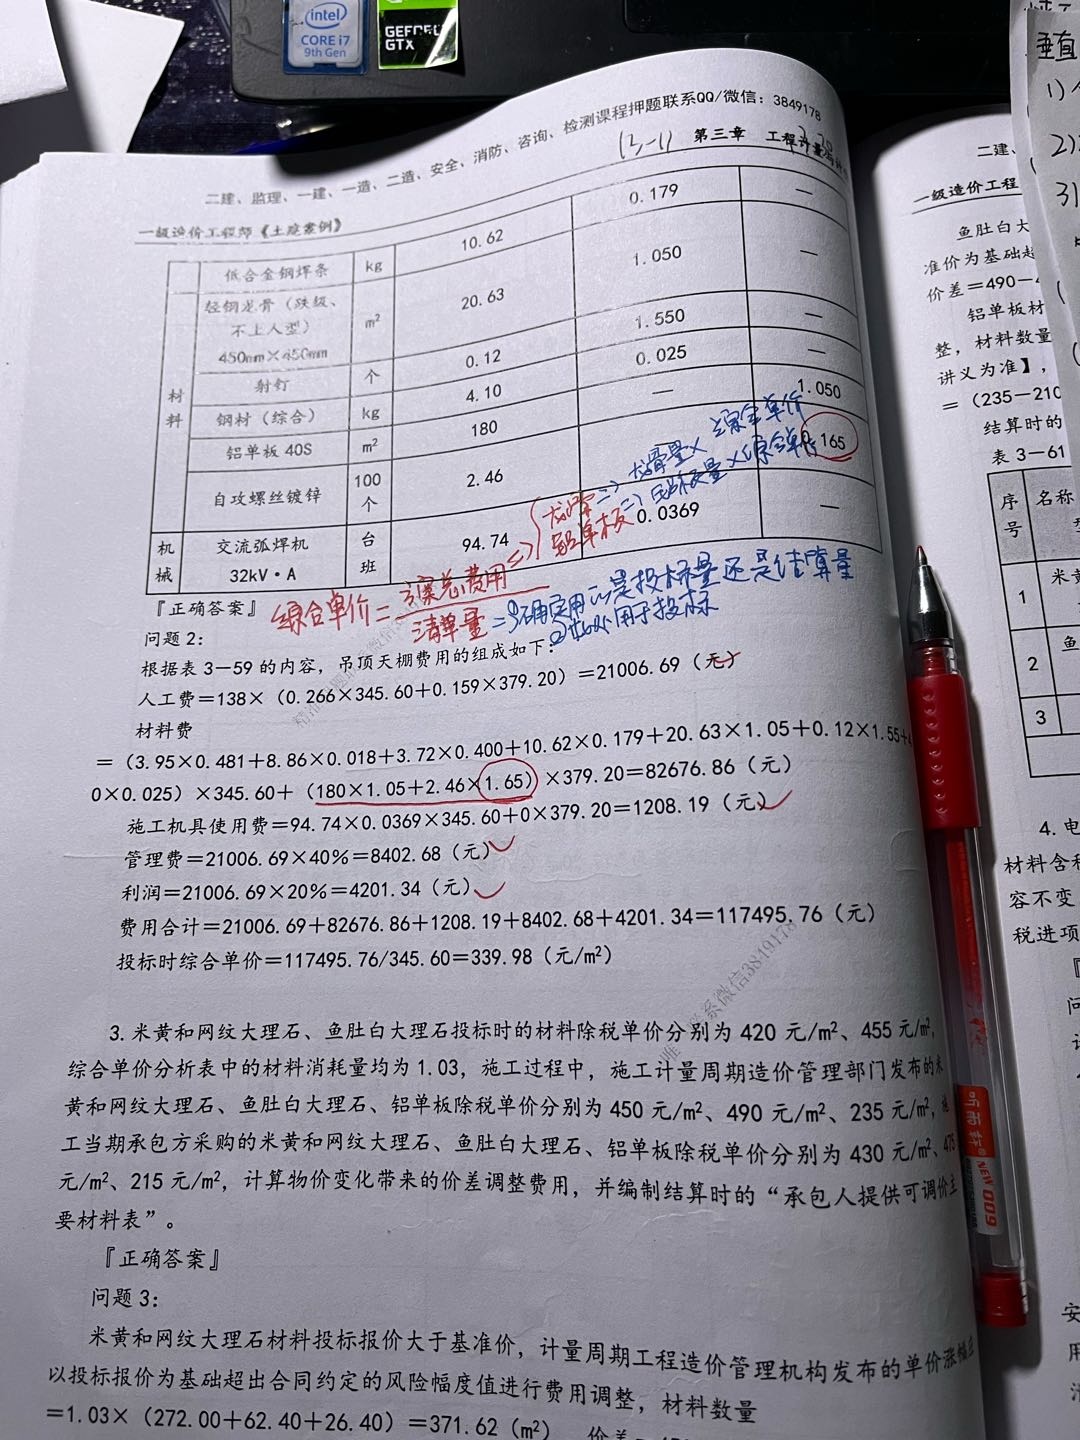 intel
CORE i7
9th Gen
GEFORCE
GTX
二建、监理、一建、一造、二造、安全、消防、咨询、检测课程押题联系QQ/微信：3849178
一级造价工程师《土建案例》
(3-1) 第三章 工程计量
低合金钢焊条 kg 10.62 0.179 —
轻钢龙骨（跌级、不上人型）450mm×450mm m² 20.63 1.050 —
射钉 个 0.12 1.550 —
钢材（综合） kg 4.10 0.025 —
铝单板 40S m² 180 — 1.050
自攻螺丝镀锌 100个 2.46 0.165
材料
机械 交流弧焊机 32kV·A 台班 94.74 0.0369 —
龙骨 => 龙骨量×综合单价
铝单板 => 铝单板量×综合单价
综合单价=清单总费用/清单量
=>确定用①是投标量还是结算量
用于投标
『正确答案』
问题 2：
根据表 3－59 的内容，吊顶天棚费用的组成如下：
人工费＝138×（0.266×345.60＋0.159×379.20）＝21006.69（元）
材料费
＝（3.95×0.481＋8.86×0.018＋3.72×0.400＋10.62×0.179＋20.63×1.05＋0.12×1.55＋4
0×0.025）×345.60＋（180×1.05＋2.46×1.65）×379.20＝82676.86（元）
施工机具使用费＝94.74×0.0369×345.60＋0×379.20＝1208.19（元）
管理费＝21006.69×40％＝8402.68（元）
利润＝21006.69×20％＝4201.34（元）
费用合计＝21006.69＋82676.86＋1208.19＋8402.68＋4201.34＝117495.76（元）
投标时综合单价＝117495.76/345.60＝339.98（元/m²）
3.米黄和网纹大理石、鱼肚白大理石投标时的材料除税单价分别为 420 元/m²、455 元/m²，
综合单价分析表中的材料消耗量均为 1.03，施工过程中，施工计量周期造价管理部门发布的米
黄和网纹大理石、鱼肚白大理石、铝单板除税单价分别为 450 元/m²、490 元/m²、235 元/m²，施
工当期承包方采购的米黄和网纹大理石、鱼肚白大理石、铝单板除税单价分别为 430 元/m²、475
元/m²、215 元/m²，计算物价变化带来的价差调整费用，并编制结算时的“承包人提供可调价主
要材料表”。
『正确答案』
问题 3：
米黄和网纹大理石材料投标报价大于基准价，计量周期工程造价管理机构发布的单价涨幅应
以投标报价为基础超出合同约定的风险幅度值进行费用调整，材料数量
＝1.03×（272.00＋62.40＋26.40）＝371.62（m²）
二建、
一级造价工程
鱼肚白大
准价为基础超
价差＝490－4
铝单板材
整，材料数量
讲义为准】，
＝（235－210
结算时的
表 3－61
序号 名称
1 米黄
2 鱼
3
4. 电
材料含税
容不变
税进项
垂直
1)
2)
3)
听雨轩
NEW 009